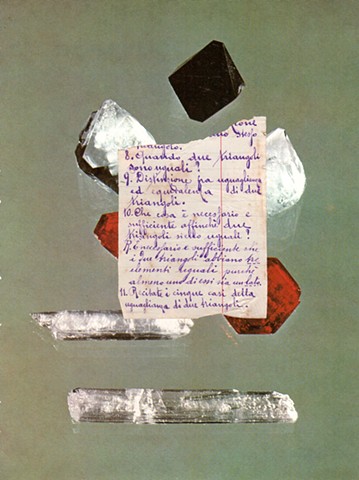 stesso
triangolo.
8. Quando due triangoli
sono uguali?
9. Distinzione fra uguaglianza
ed equivalenza di due
triangoli.
10. Che cosa è necessario e
sufficiente affinché due
triangoli siano uguali?
È necessario e sufficiente che
i due triangoli abbiano tre
elementi uguali purché
almeno uno di essi sia un lato.
11. Recitate i cinque casi della
uguaglianza di due triangoli.